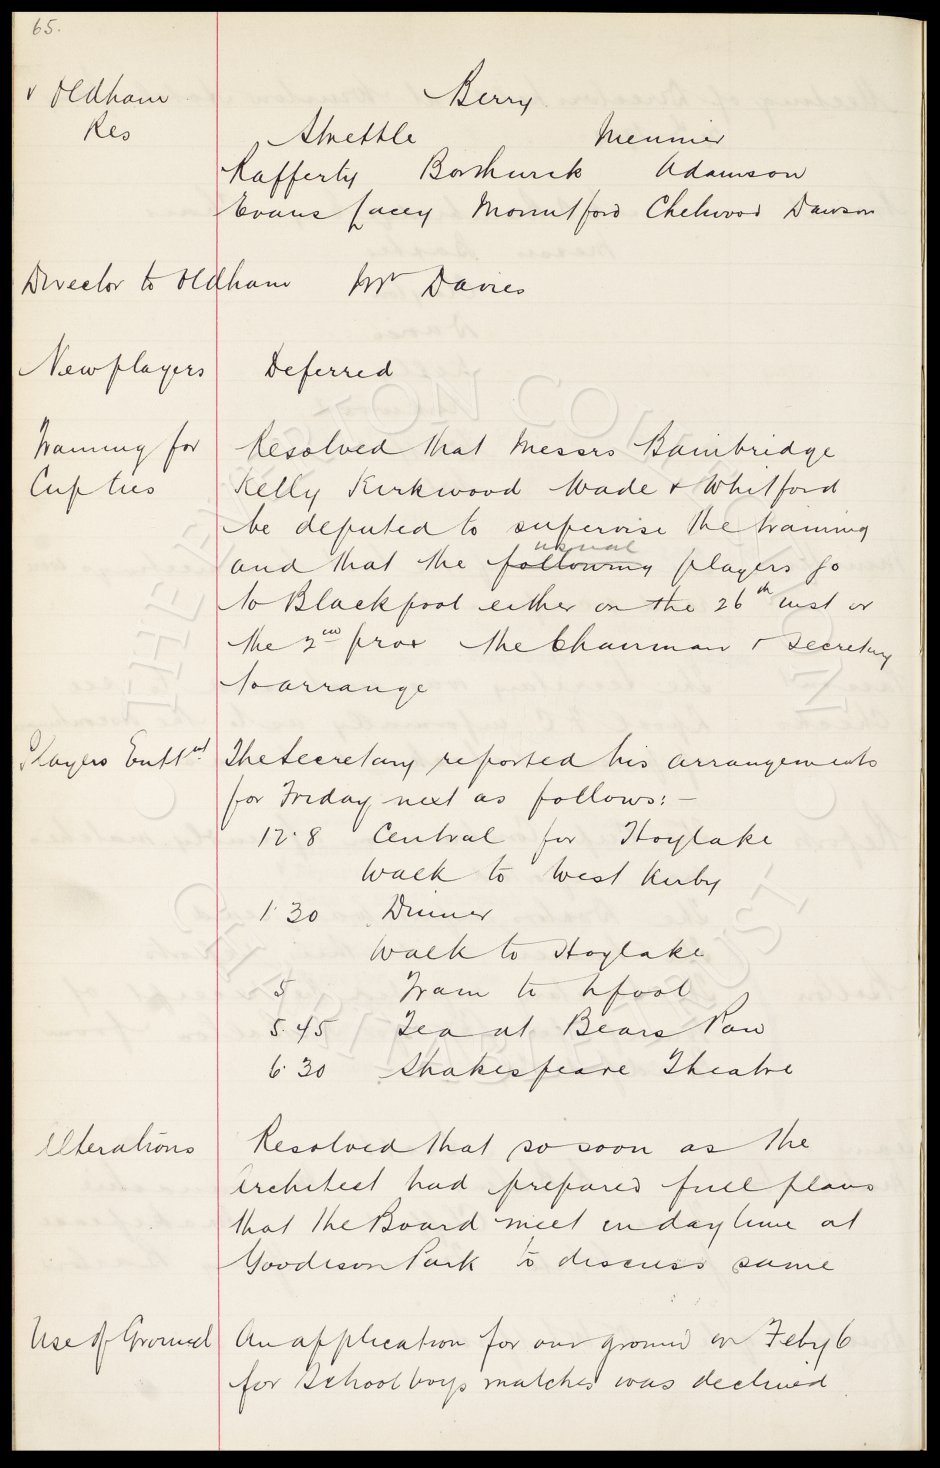 65.
v Oldham Berry
Res Strettle Meunier
Rafferty Borthwick Adamson
Evans Lacey Mountford Chetwood Dawson
Director to Oldham Mr Davies
New players Deferred
Training for Resolved that Messrs Bainbridge
Cup ties Kelly Kirkwood Wade & Whitford
be deputed to supervise the training
usual
and that the following players go
to Blackpool either on the 26th inst or
the 2nd prox the Chairman & Secretary
to arrange
Players Entt The Secretary reported his arrangements
for Friday next as follows:-
12.8 Central for Hoylake
Walk to West Kirby
1.30 Dinner
Walk to Hoylake
5 Train to Lpool
5.45 Tea at Bears Paw
6.30 Shakespeare Theatre
Alterations Resolved that so soon as the
Architect had prepared full plans
that the Board meet in daytime at
Goodison Park to discuss same
Use of Ground An application for our ground on Feby 6
for Schoolboys matches was declined